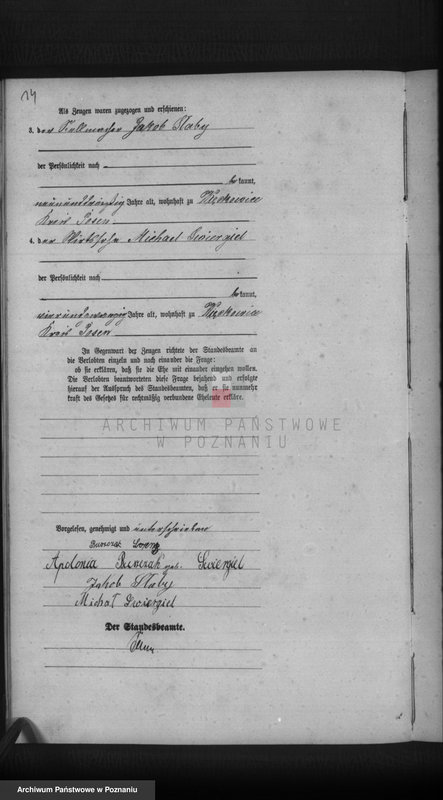 14
Als Zeugen waren zugezogen und erschienen:
3. der Jakob Slaby
der Persönlichkeit nach
be kannt,
Jahre alt, wohnhaft zu
Kreis Posen.
4. der Wirtssohn Michael Swiergiel
der Persönlichkeit nach
be kannt,
vierundzwanzig Jahre alt, wohnhaft zu
Kreis Posen
In Gegenwart der Zeugen richtete der Standesbeamte an
die Verlobten einzeln und nach einander die Frage:
ob sie erklären, daß sie die Ehe mit einander eingehen wollen.
Die Verlobten beantworteten diese Frage bejahend und erfolgte
hierauf der Ausspruch des Standesbeamten, daß er sie nunmehr
kraft des Gesetzes für rechtmäßig verbundene Eheleute erkläre.
ARCHIWUM PAŃSTWOWE
W POZNANIU
Vorgelesen, genehmigt und unterschrieben
Apolonia geb. Swiergiel
Jakob Slaby
Michał Swiergiel
Der Standesbeamte.
Archiwum Państwowe w Poznaniu